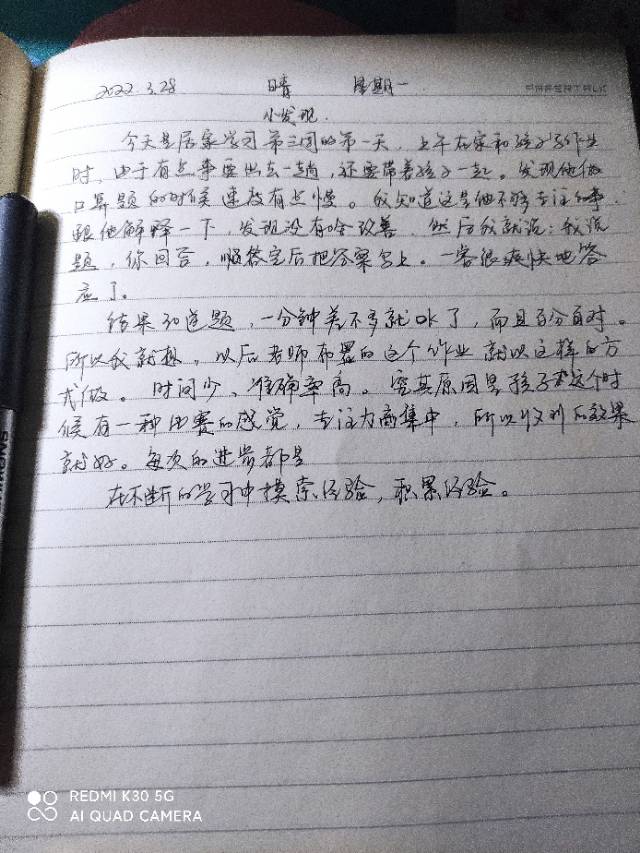 2022.3.28 晴 星期一
小发现.
今天是居家学习第三周的第一天，上午在家和孩子写作业
时，由于有点事要出去一趟，还要带着孩子一起。发现他做
口算题的时候速度有点慢。我知道这是他不够专注
跟他解释一下，发现没有啥改善，然后我就说：我说
题，你回答，临答完后把答案写上。一客很爽快地答
应了。
结果30道题，一分钟差不多就OK了，而且百分百对。
所以我就想，以后老师布置的这个作业就以这样的方
式做。时间少、准确率高。究其原因是孩子在这个时
候有一种比赛的感觉，专注力高集中，所以收到的效果
就好。每次的进步都是
在不断的学习中摸索经验，积累经验。
REDMI K30 5G
AI QUAD CAMERA